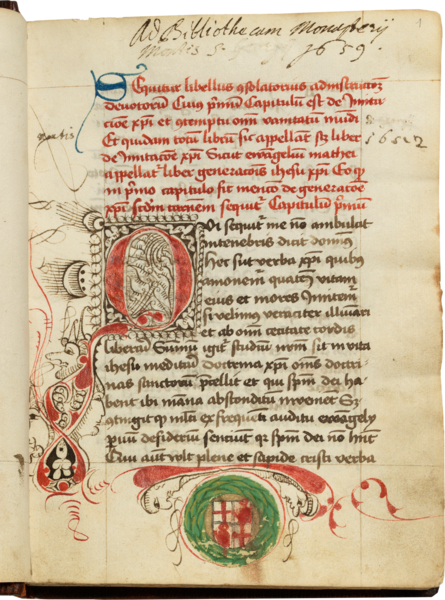 Ad Bibliothecam Monasterij
Montis S. 1659.
Sequitur libellus consolatorius ad instructoem
deuotorum Cuius primum Capitulum est de Imita
cioe xpi et contemptu omnium vanitatum mundi
Et quidam totum librum sic appellant scz liber
de Imitacioe xpi Sicut ewangelium mathei
appellatur liber generacois ihesu xpi Eo qz
in primo capitulo fit mencio de generacioe
xpi scdm carnem sequitur Capitulum primum
1652
Qui sequitur me no ambulat
in tenebris dicit dominus
Hec sunt verba xpi quibus
amonemur quatenus vitam
eius et mores Imitemur
si velimus veraciter illuminari
et ab omni cecitate cordis
liberari Summum igitur studium nostrum sit in vita
ihesu meditari Doctrina xpi omnes doctri-
nas sanctorum precellit et qui spm dei ha-
bent ibi manna absconditum inuenient Sz
contingit qz multi ex frequenti auditu ewangelij
paruum desiderium senciunt qz spm dei no hnt
Qui aut vult plene et sapide cristi verba